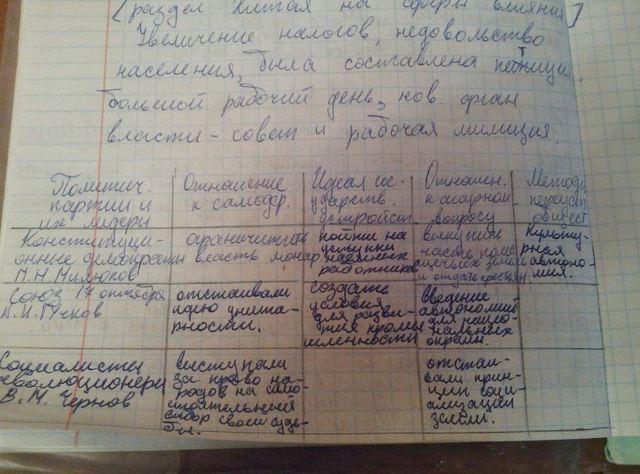 [раздел Китая на сферы влияния]
Увеличение налогов, недовольство
населения, была составлена петиция.
большой рабочий день, нов. орган
власти - совет и рабочая милиция.
Политич.
партии и
их лидеры
Отношение
к самодр.
Идеал го-
сударств.
устройст.
Отношен.
к аграрном
вопросу
Методы
переуст
общест
Конституци-
онные демократы
П.Н Милюков
ограничить
власть монар
пойти на
уступки
наёмных
работников
выкупить
часть поме
щичьих земель
и отдать крестьян
Культу-
рная
автоно-
мия.
Союз 17 октября
А.И.Гучков
отстаивали
идею унита-
рности.
создать
условия
для разви-
тия промы
шленности
введение
автономии
для нацио-
нальных
окраин.
Социалисты
революционеры
В.М. Чернов
выступали
за право на-
родов на само-
стоятельный
выбор своей судь-
бы.
отстаи-
вали прин-
ципы соци-
ализации
земли.